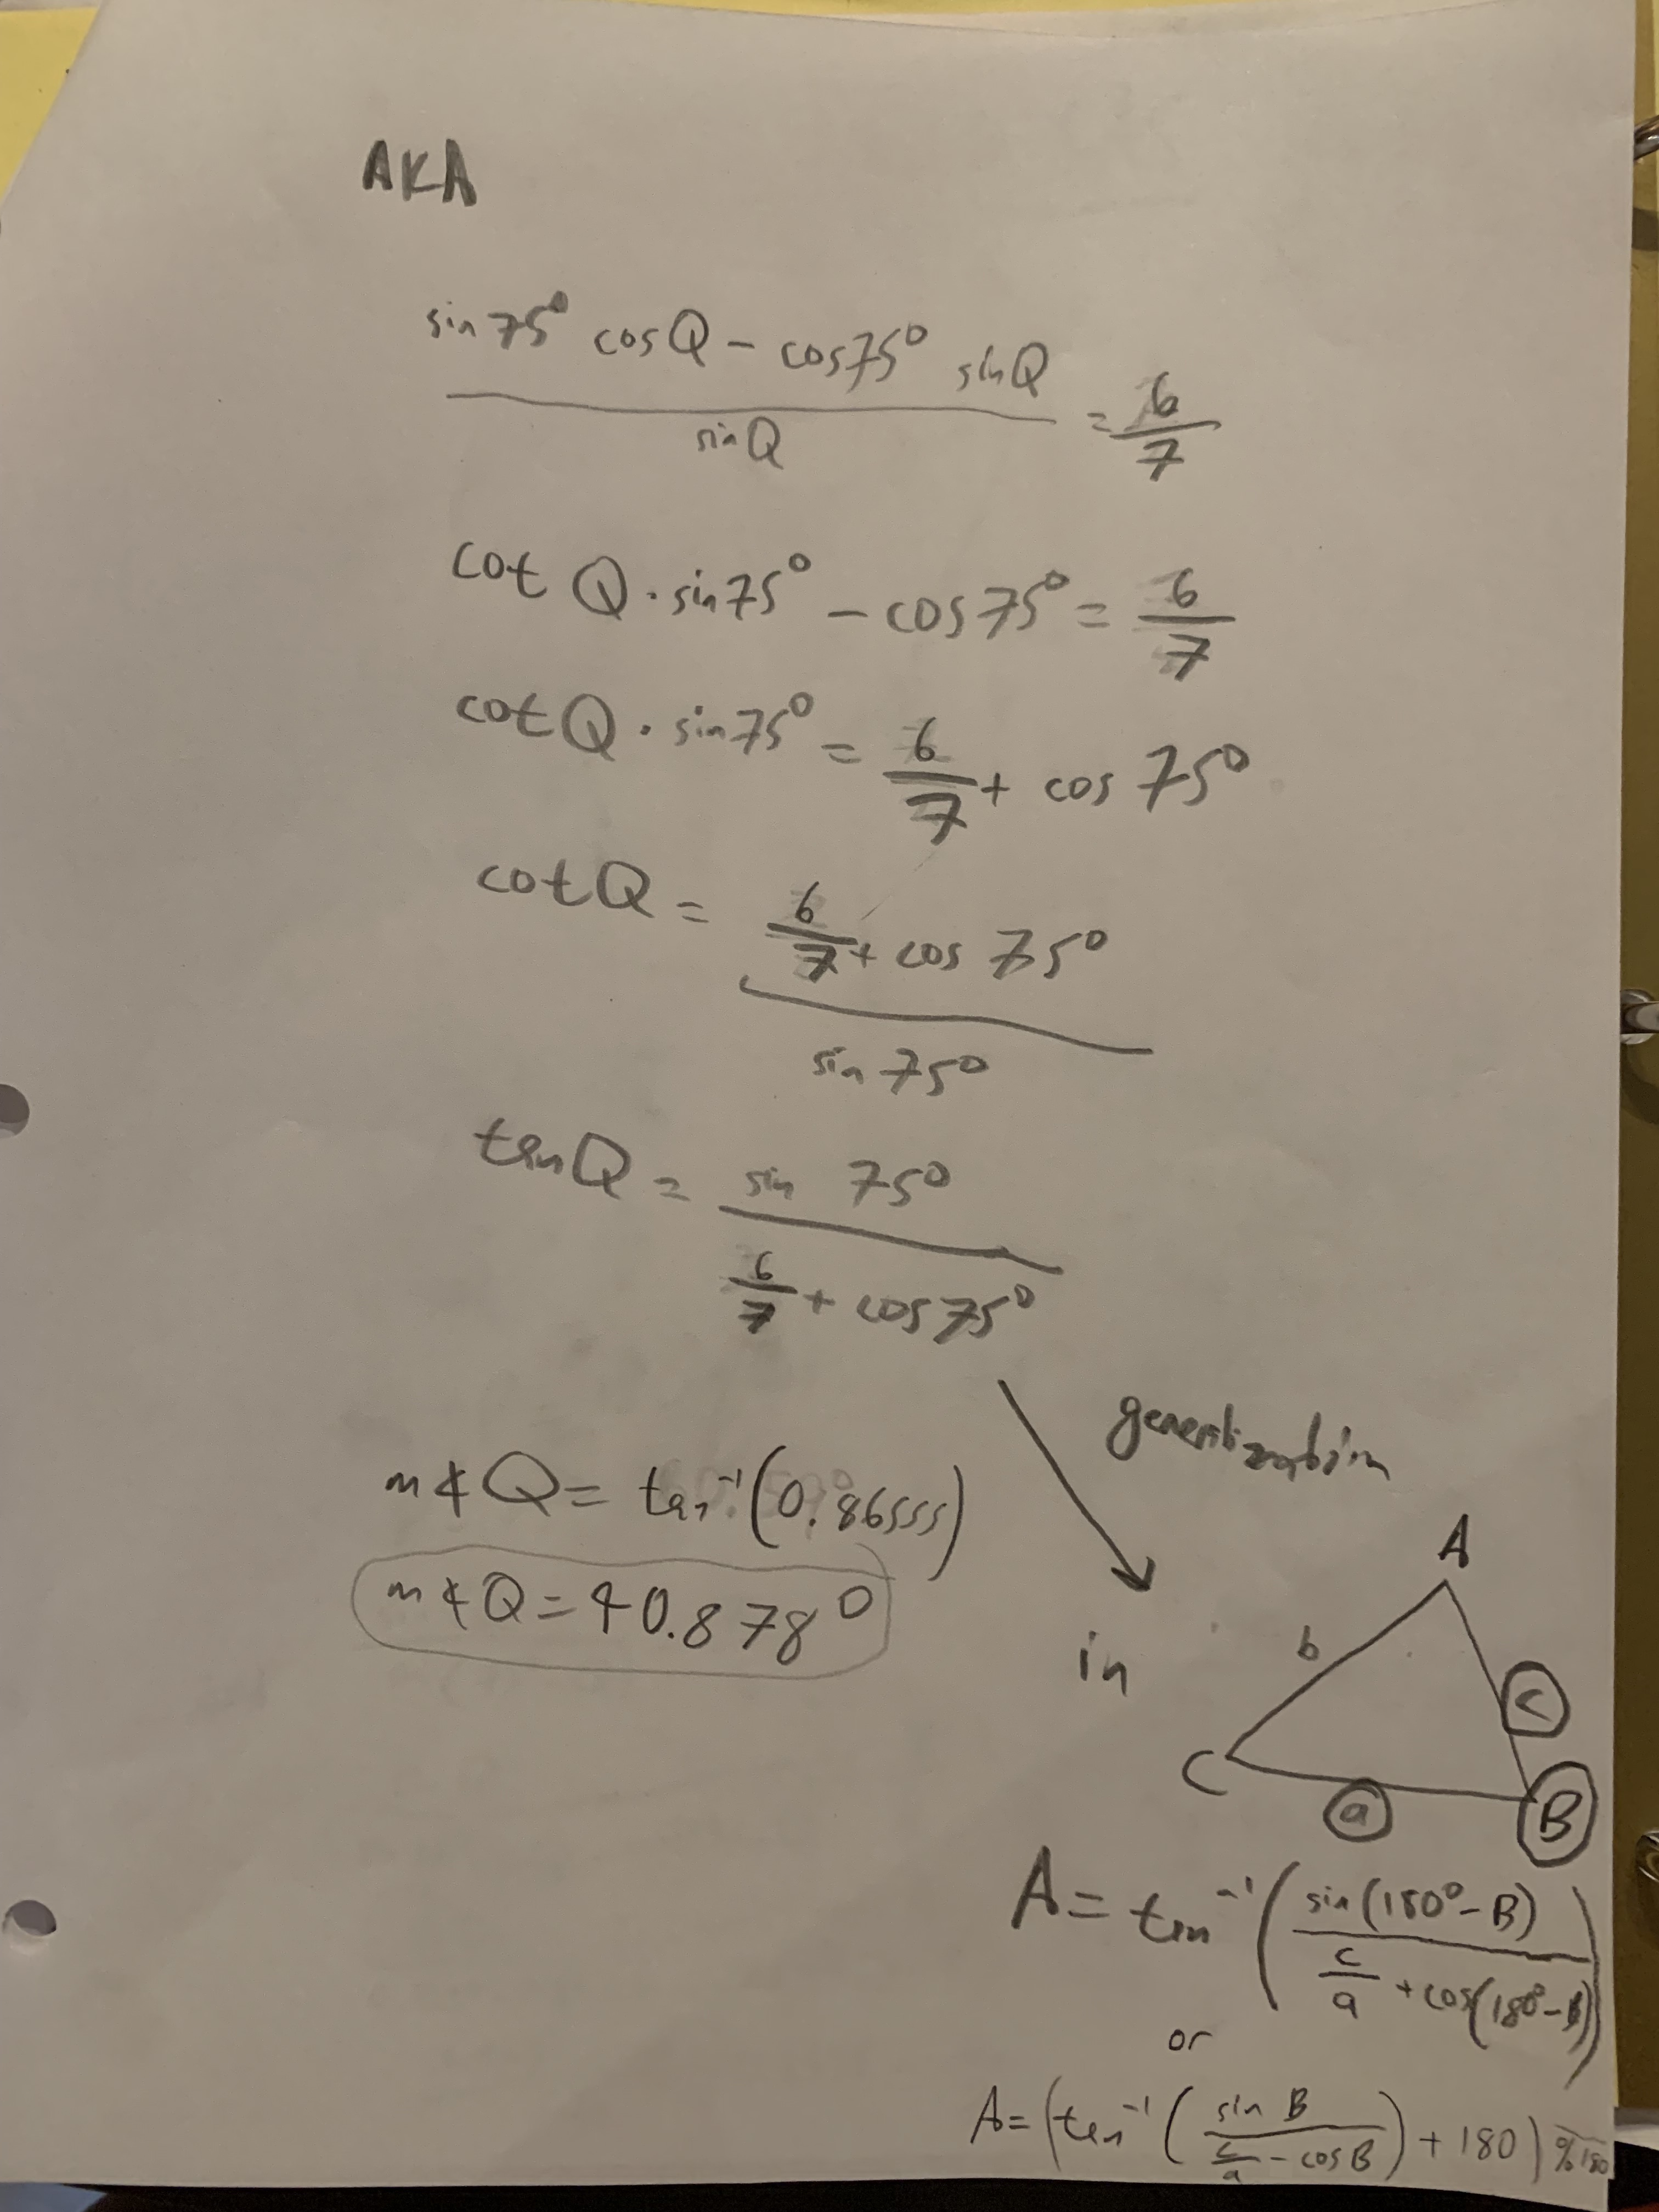 AKA
sin 75° cos Q − cos 75° sin Q / sin Q = 6/7
cot Q · sin 75° − cos 75° = 6/7
cot Q · sin 75° = 6/7 + cos 75°
cot Q = (6/7 + cos 75°) / sin 75°
tan Q = sin 75° / (6/7 + cos 75°)
generalization
m∡Q = tan⁻¹(0.86555)
m∡Q = 40.878°
in
A
b
c
C
a
B
A = tan⁻¹(sin(180° − B) / (c/a + cos(180° − B)))
or
A = (tan⁻¹(sin B / (c/a − cos B)) + 180) % 180